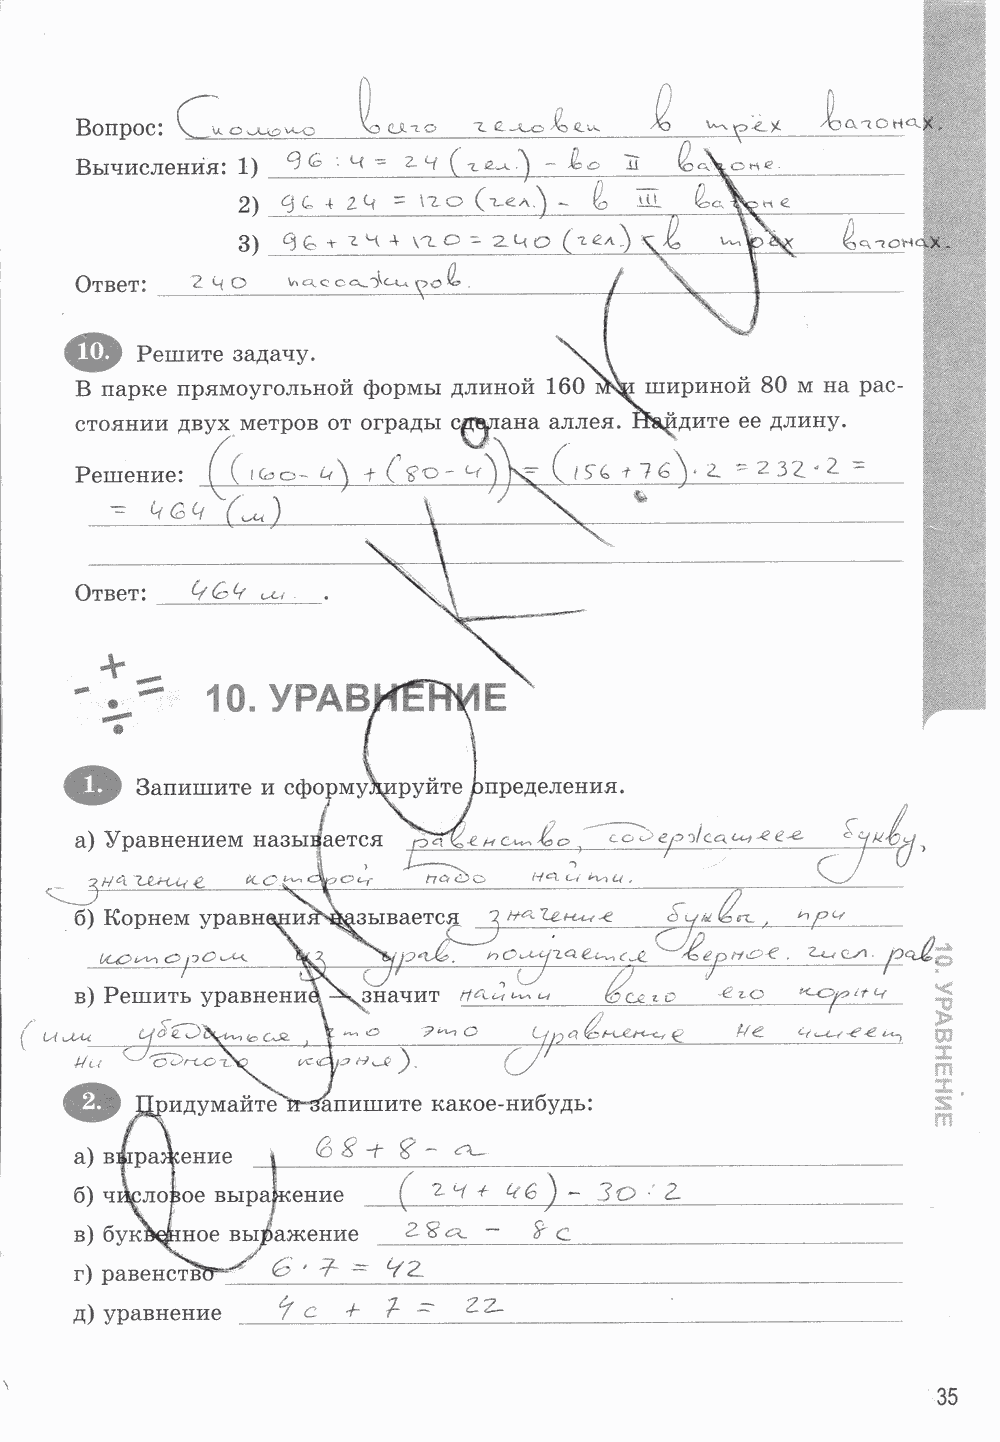 Вопрос: Сколько всего человек в трёх вагонах.
Вычисления: 1) 96 : 4 = 24 (чел.) - во II вагоне.
2) 96 + 24 = 120 (чел.) - в III вагоне
3) 96 + 24 + 120 = 240 (чел.) - в трёх вагонах.
Ответ: 240 пассажиров.
10. Решите задачу.
В парке прямоугольной формы длиной 160 м и шириной 80 м на рас-
стоянии двух метров от ограды сделана аллея. Найдите ее длину.
Решение: ((160 - 4) + (80 - 4)) = (156 + 76) · 2 = 232 · 2 =
= 464 (м)
Ответ: 464 м.
10. УРАВНЕНИЕ
1. Запишите и сформулируйте определения.
а) Уравнением называется равенство, содержащее букву,
значение которой надо найти.
б) Корнем уравнения называется значение буквы, при
котором из урав. получается верное. числ. рав
в) Решить уравнение — значит найти всего его корни
(или убедиться, что это уравнение не имеет
ни одного корня).
2. Придумайте и запишите какое-нибудь:
а) выражение 68 + 8 - а
б) числовое выражение (24 + 46) - 30 : 2
в) буквенное выражение 28а - 8с
г) равенство 6 · 7 = 42
д) уравнение 4с + 7 = 22
10. УРАВНЕНИЕ
35